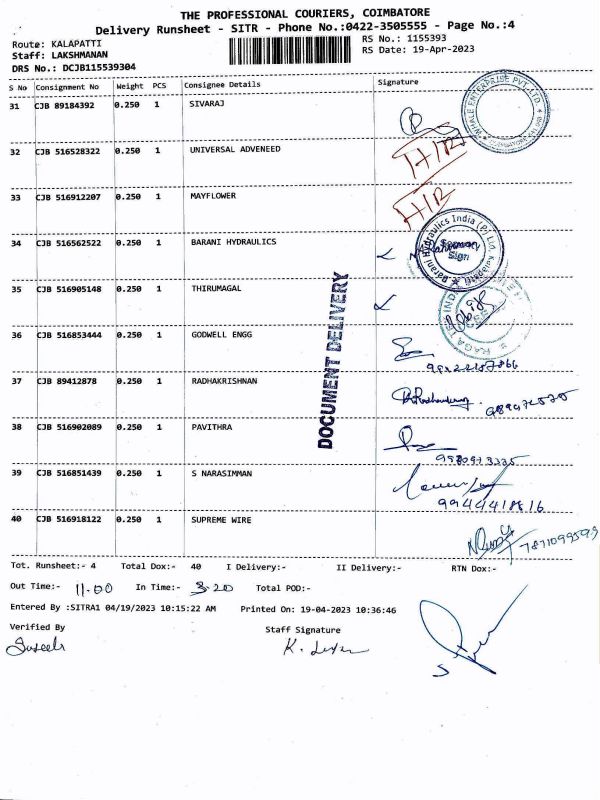 THE PROFESSIONAL COURIERS, COIMBATORE
Delivery Runsheet - SITR - Phone No.:0422-3505555 - Page No.:4
Route: KALAPATTI
RS No.: 1155393
Staff: LAKSHMANAN
RS Date: 19-Apr-2023
DRS No.: DCJB115539304
S No Consignment No Weight PCS Consignee Details Signature
31 CJB 89184392 0.250 1 SIVARAJ
32 CJB 516528322 0.250 1 UNIVERSAL ADVENEED
33 CJB 516912207 0.250 1 MAYFLOWER
34 CJB 516562522 0.250 1 BARANI HYDRAULICS
Barani Hydraulics India (P) Ltd. Kalapatti
35 CJB 516905148 0.250 1 THIRUMAGAL
36 CJB 516853444 0.250 1 GODWELL ENGG
37 CJB 89412878 0.250 1 RADHAKRISHNAN
38 CJB 516902089 0.250 1 PAVITHRA
39 CJB 516851439 0.250 1 S NARASIMMAN
9944418816
40 CJB 516918122 0.250 1 SUPREME WIRE
7871099599
DOCUMENT DELIVERY
Tot. Runsheet:- 4 Total Dox:- 40 I Delivery:- II Delivery:- RTN Dox:-
Out Time:- 11.00 In Time:- 3.20 Total POD:-
Entered By :SITRA1 04/19/2023 10:15:22 AM Printed On: 19-04-2023 10:36:46
Verified By Staff Signature